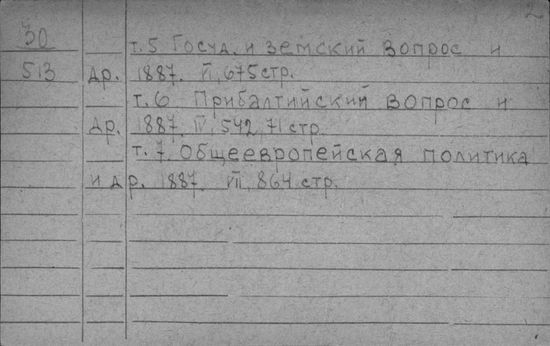 2
30 т. 5 Госуд. и земский вопрос и
513 др. 1887. VI, 675 стр.
т. 6 Прибалтийский вопрос и
др. 1887. IV, 542, 71 стр.
т. 7. Общеевропейская политика
и др. 1887. VII, 864 стр.